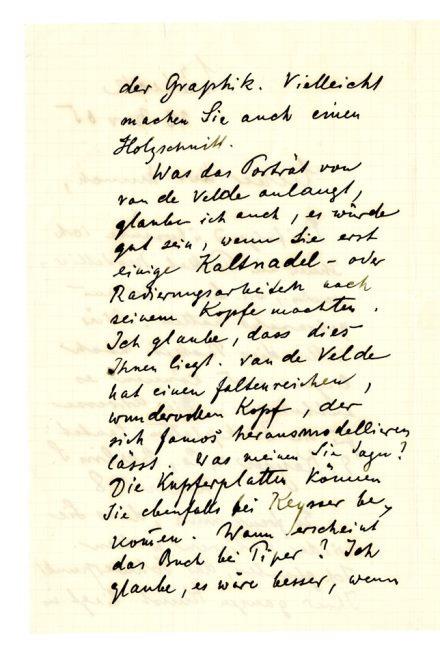 der Graphik. Vielleicht
machen Sie auch einen
Holzschnitt.
Was das Porträt von
van de Velde anlangt,
glaube ich auch, es würde
gut sein, wenn Sie erst
einige Kaltnadel- oder
Radierungsarbeiten nach
seinem Kopfe machten.
Ich glaube, dass dies
Ihnen liegt. van de Velde
hat einen faltenreichen,
wundervollen Kopf, der
sich famos herausmodellieren
lässt. Was meinen Sie dazu?
Die Kupferplatten können
Sie ebenfalls bei Keysser be-
kom̄en. Wann erscheint
das Buch bei Piper? Ich
glaube, es wäre besser, wenn